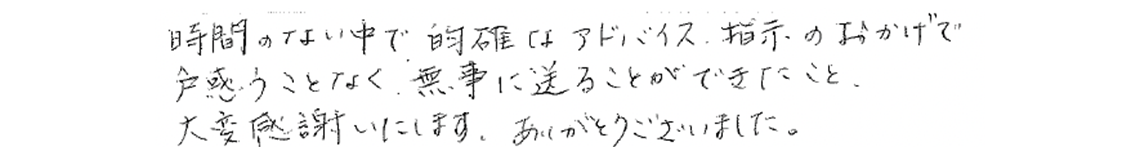 時間のない中で的確なアドバイス、指示のおかげで
戸惑うことなく、無事に送ることができたこと、
大変感謝いたします。ありがとうございました。